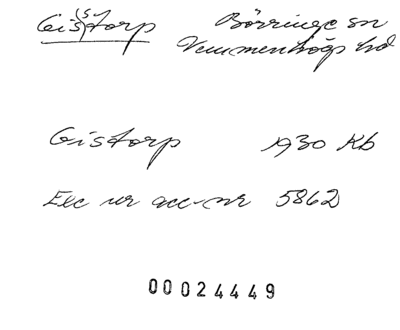 Gis(s)torp Börringe sn
Vemmenhögs hd
Gistorp 1930 Kb
Exc ur acc-nr 5862
00024449